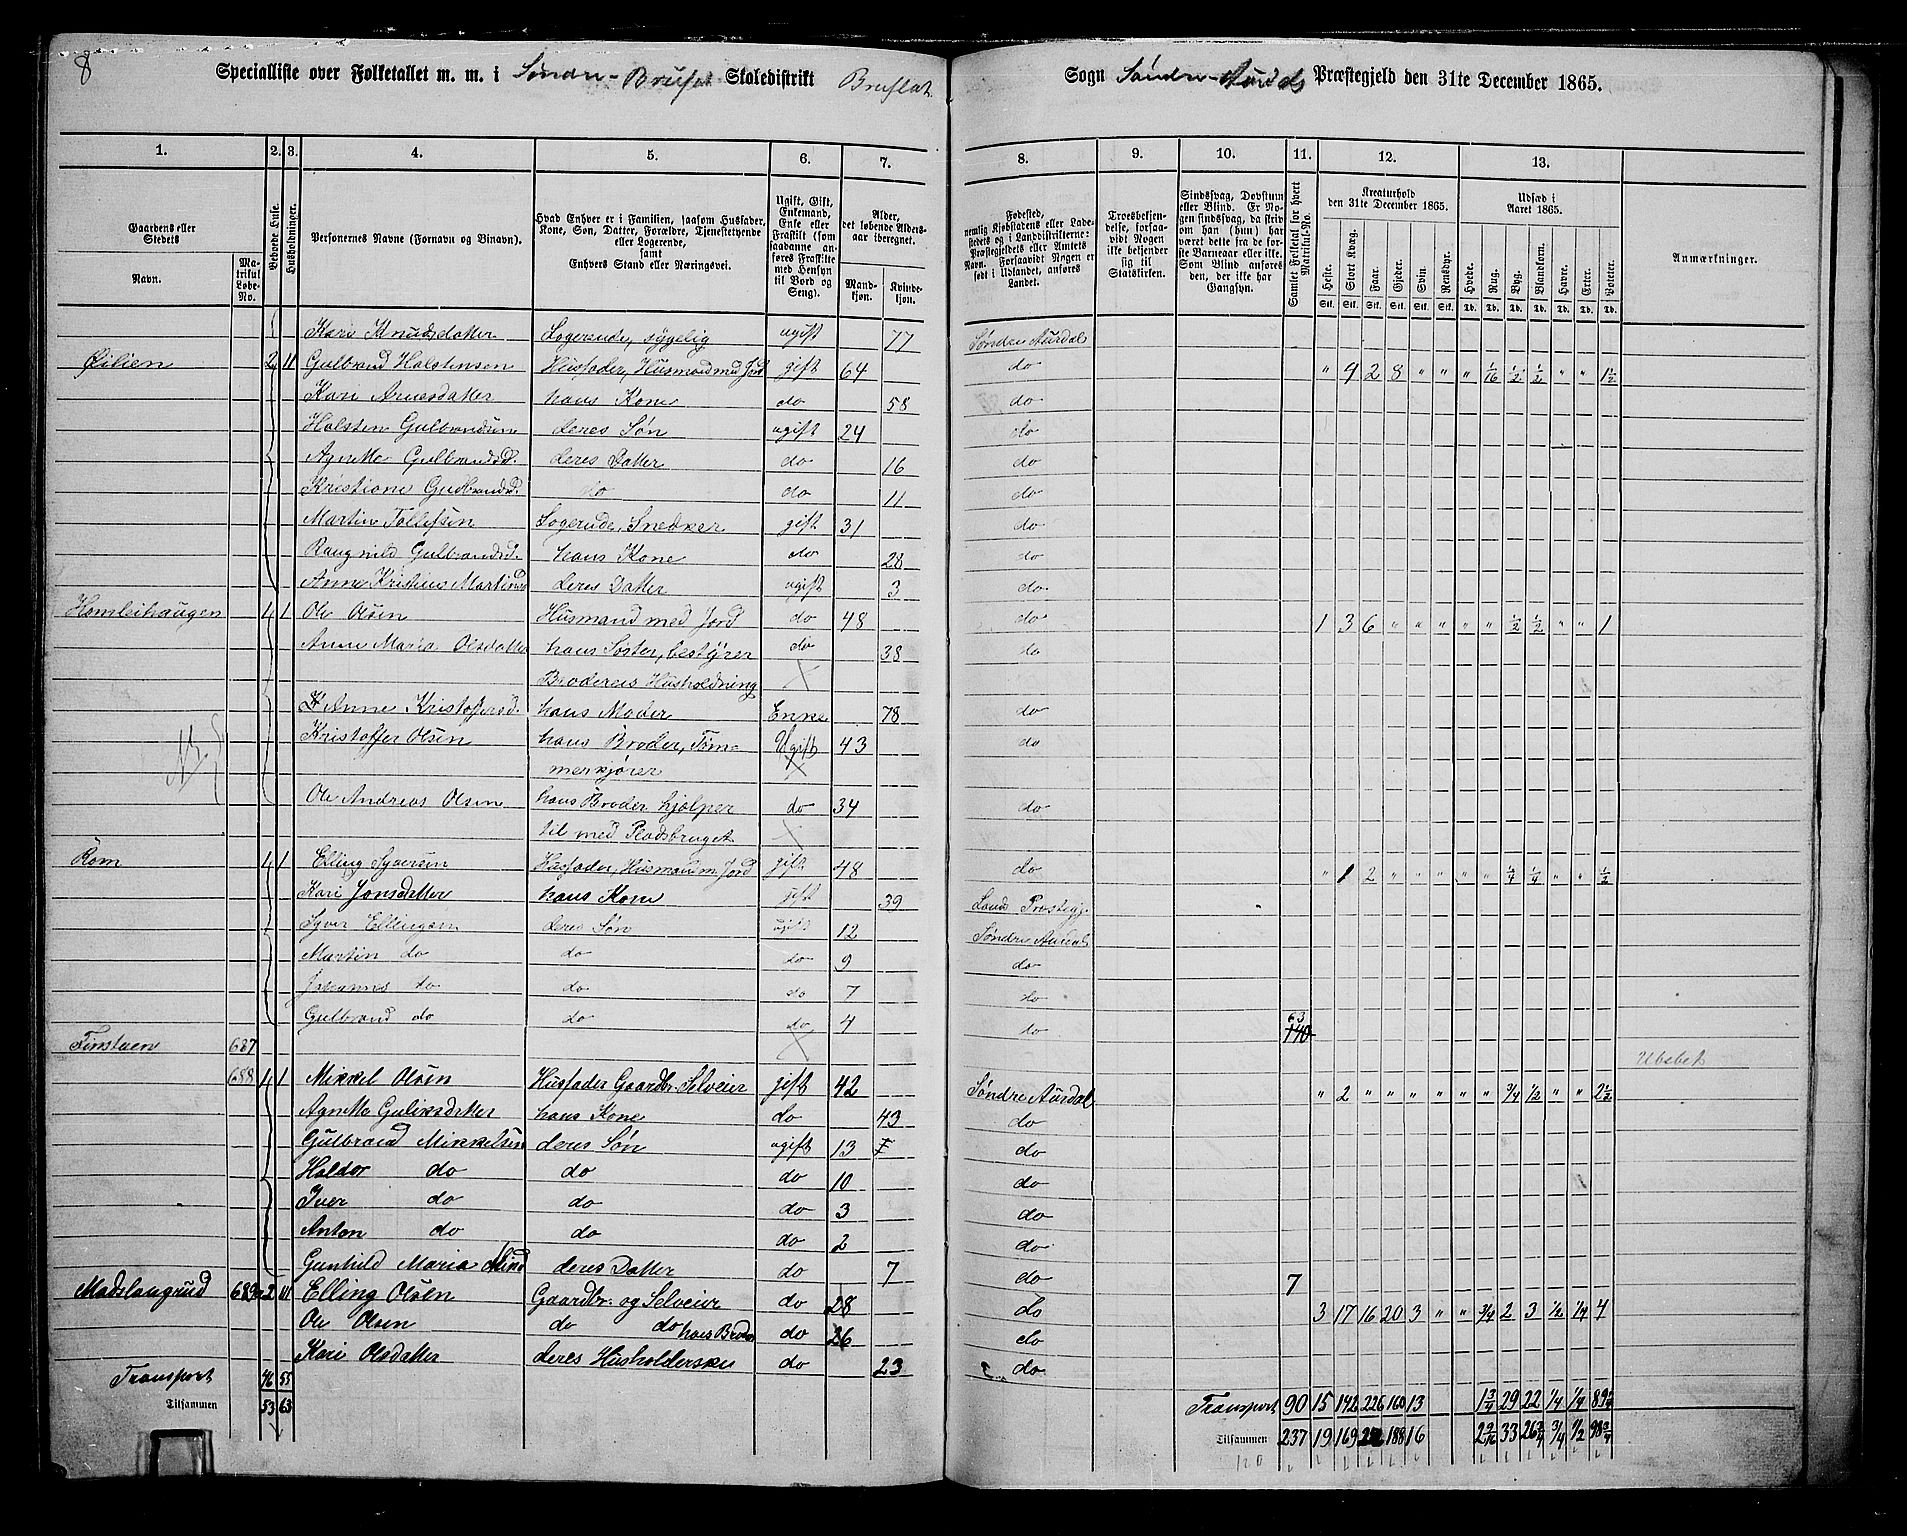 8
Specialliste over Folketallet m. m. i Søndre-Bruflat Skoledistrikt Bruflat
Sogn Søndre-Aurdals Præstegjeld den 31te December 1865.
1. 2. 3. 4. 5. 6. 7. 8. 9. 10. 11. 12. 13.
Gaardens eller Stedets
Navn.
Matrikul Løbe-No.
Beboede Huse.
Husholdninger.
Personernes Navne (Fornavn og Binavn).
Hvad Enhver er i Familien, saasom Husfader, Kone, Søn, Datter, Forældre, Tjenestetyende eller Logerende, samt Enhvers Stand eller Næringsvei.
Ugift, Gift, Enkemand, Enke eller Fraskilt (som saadanne anføres Fraskilte med Hensyn til Bord og Seng).
Alder, det løbende Aldersaar iberegnet.
Mandkjøn.
Kvindekjøn.
Fødested, nemlig Kjøbstadens eller Ladestedets og i Landdistrikterne: Præstegjeldets eller Amtets Navn. Forsaavidt Nogen er født i Udlandet, anføres Landet.
Troesbekjendelse, forsaavidt Nogen ikke bekjender sig til Statskirken.
Sindssvag, Døvstum eller Blind. Er Nogen sindssvag, da skrives om han (hun) har været dette fra de første Barneaar eller ikke. Som Blind anføres den, der ikke har Gangsyn.
Samlet Folketal for hvert Matrikul-No.
Kreaturhold den 31te December 1865.
Heste. Stort Kvæg. Faar. Gjeder. Svin. Rensdyr.
Udsæd i Aaret 1865.
Hvede. Rug. Byg. Blandkorn. Havre. Erter. Poteter.
Anmærkninger.
Kari Knudsdatter Logerende, sygelig ugift 77 Søndre Aurdal
Øilien 2 II Gulbrand Halstensen Husfader, Husmand med Jord gift 64 do " 4 2 8 " " " 1/16 1/2 1/2 " " 1 1/2
Kari Arnesdatter hans Kone do 58 do
Halsten Gulbrandsen deres Søn ugift 24 do
Agnethe Gulbrandsd. deres Datter do 16 do
Kristiane Gudbrandsd. do do 11 do
Martin Tollefsen Logerende, Snedker gift 31 do
Rangnild Gulbrandsd. hans Kone do 28 do
Anne Kristine Martinsd deres Datter ugift 3 do
Homleihaugen 1 Ole Olsen Husmand med Jord do 48 do 1 3 6 " " " " " 1/2 1/2 " " 1
Anne Maria Olsdatter hans Søster, bestyrer do 38 do
Broderens Husholdning
Anne Kristoffersd. hans Moder Enke 78 do
Kristoffer Olsen hans Broder, Tøm- Ugift 43 do
merkjører
Ole Andreas Olsen hans Broder hjælper do 34 do
til med Pladsbruget
Rom 1 Elling Syversen Husfader, Husmand m. Jord gift 48 do " 1 2 " " " " " 3/4 1/4 " " 1/2
Kari Jonsdatter hans Kone gift 39 Land Præstegj.
Syver Ellingsen deres Søn ugift 12 Søndre Aurdal
Martin do do do 9 do
Johannes do do do 7 do
Gulbrand do do do 4 do 63 140
Tinstuen 687 Ubebot
688 1 Mikkel Olsen Husfader Gaardbr. Selveier gift 42 Søndre Aurdal " 2 " " " " " " 3/4 1/2 " " 2 1/2
Agnethe Guliksdatter hans Kone do 43 do
Gulbrand Mikkelsen deres Søn ugift 13 do
Haldor do do do 10 do
Iver do do do 3 do
Anton do do do 2 do
Gunhild Maria deres Datter do 7 do 7
Madslangrud 689a 2 III Elling Olsen Gaardbr. og Selveier do 28 do 3 17 16 20 3 " " 3/4 2 3 1/2 1/4 4
Ole Olsen do do hans Broder do 26 do
Kari Olsdatter deres Husholderske do 23 do
Transport 46 55
Tilsammen 53 63
Transport 90 15 142 226 160 13 1 3/4 29 22 1/4 1/4
Tilsammen 237 19 169 188 16 2 9/16 33 26 3/4 3/4 1/2 98 3/4